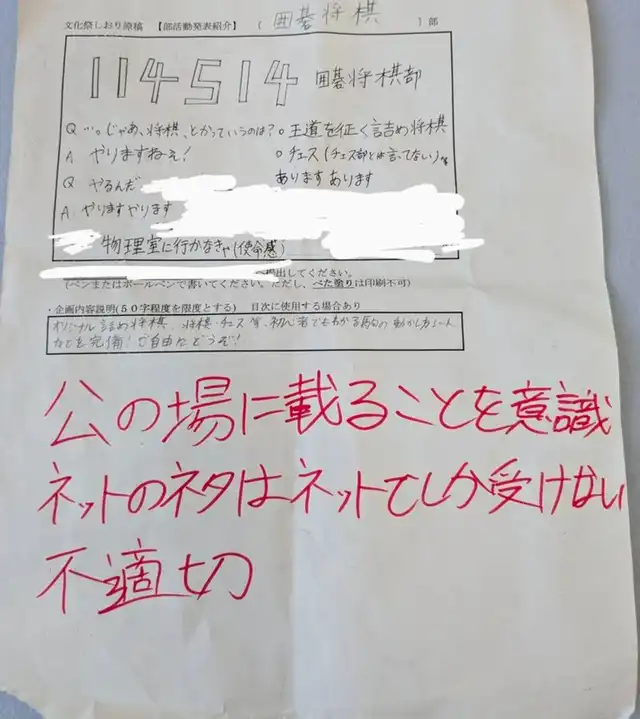 文化祭しおり原稿 【部活動発表紹介】 ( 囲碁将棋 )部
114514 囲碁将棋部
Q …。じゃあ、将棋、とかっていうのは?
A やりますねぇ!
Q やるんだ
A. やりますやります
○ 王道を征く詰め将棋
○ チェス(チェス部とは言ってない)
あります あります
物理室に行かなきゃ(使命感)
提出してください。
(ペンまたはボールペンで書いてください。ただし、べた塗りは印刷不可)
・企画内容説明(50字程度を限度とする) 目次に使用する場合あり
オリジナル詰め将棋、将棋・チェス等、初心者でもわかる駒の動かし方シート
などを完備! ご自由にどうぞ!
公の場に載ることを意識
ネットのネタはネットでしか受けない
不適切